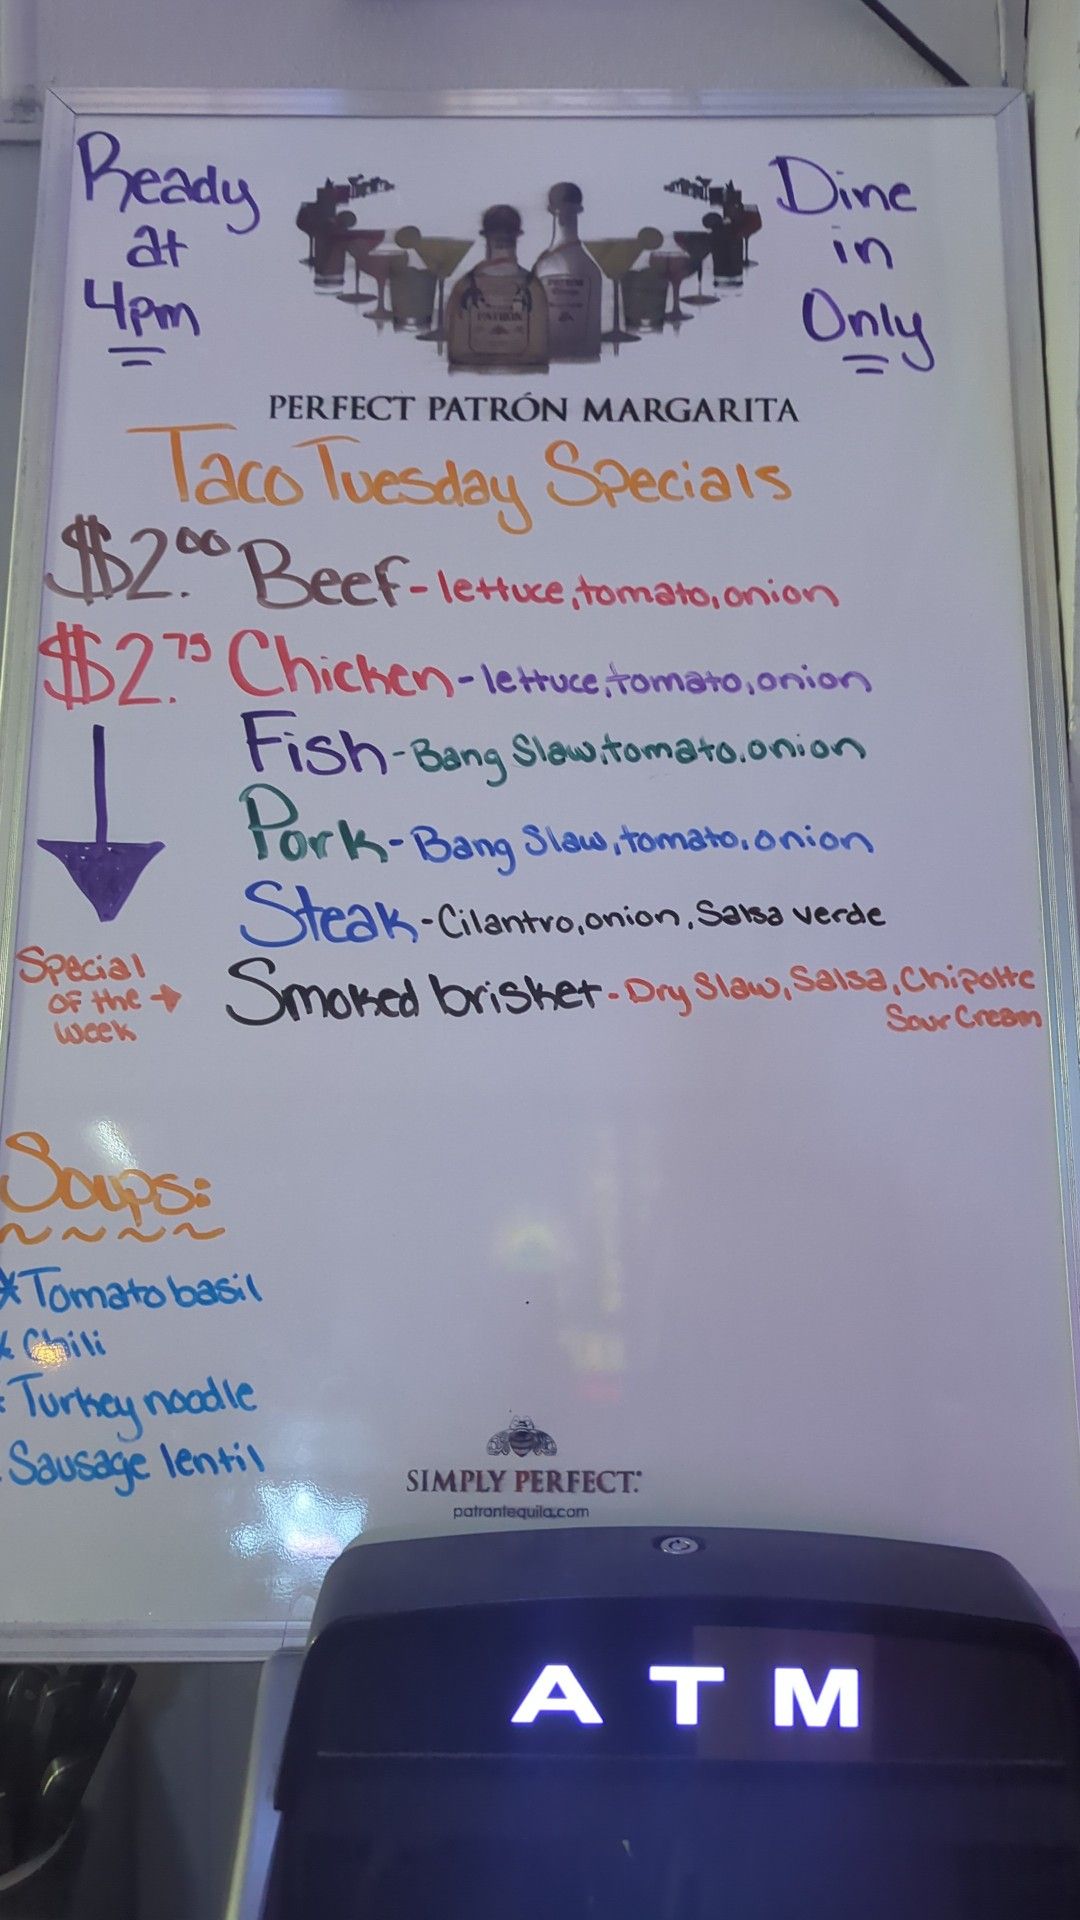 Ready
at
4pm
Dine
in
Only
PATRÓN
PERFECT PATRÓN MARGARITA
Taco Tuesday Specials
$2.00 Beef - lettuce, tomato, onion
$2.75 Chicken - lettuce, tomato, onion
Fish - Bang Slaw, tomato, onion
Pork - Bang Slaw, tomato, onion
Steak - Cilantro, onion, Salsa verde
Special
of the →
week
Smoked brisket - Dry Slaw, Salsa, Chipotte
Sour Cream
Soups:
~ ~ ~ ~
* Tomato basil
* Chili
* Turkey noodle
Sausage lentil
SIMPLY PERFECT.
patrontequila.com
ATM